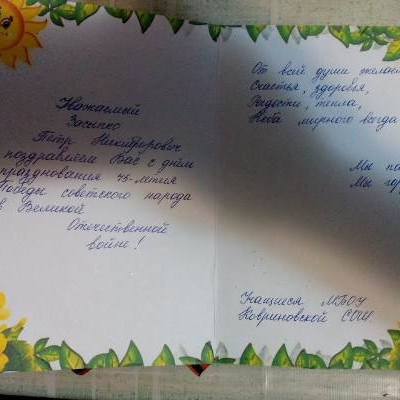 Уважаемый
Засыпко
Пётр Никифорович
поздравляем Вас с днём
празднования 75-летия
Победы советского народа
в Великой
Отечественной
войне!
От всей души желаем
Счастья, здоровья,
Радости, тепла,
Неба мирного всегда
Мы
Мы
Учащиеся МБОУ
Ковриновской СОШ